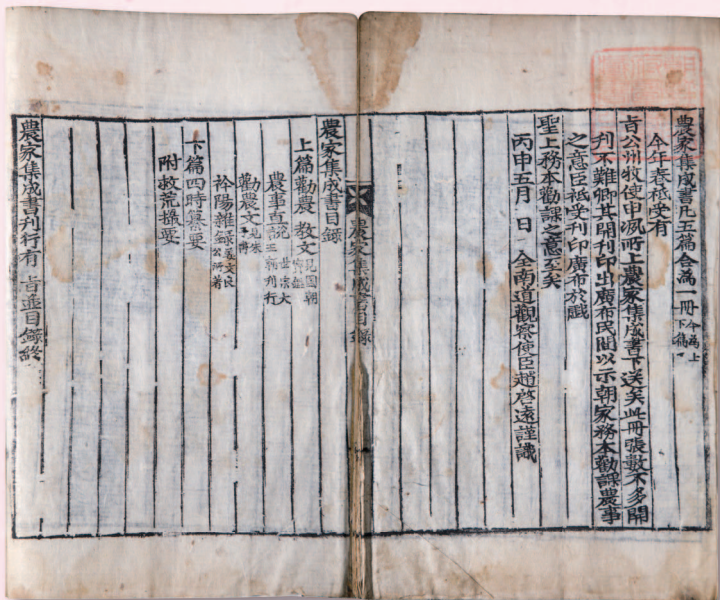 農家集成書凡五篇合爲一冊今爲上下篇
今年春祗受有
旨公州牧使申洬所上農家集成書下送矣此冊張數不多開
刊不難卿其開刊印出廣布民間以示朝家務本勸課農事
之意臣祗受刊印廣布於賦
聖上務本勸課之意至矣
丙申五月 日 全南道觀察使臣趙啓遠謹識
農家集成書目錄
農家集成書目錄
上篇勸農教文
農事直說 世宗大王朝刊行
勸農文
衿陽雜錄 姜文良公所著
下篇四時纂要
附救荒撮要
農家集成書刊行有 旨並目錄終